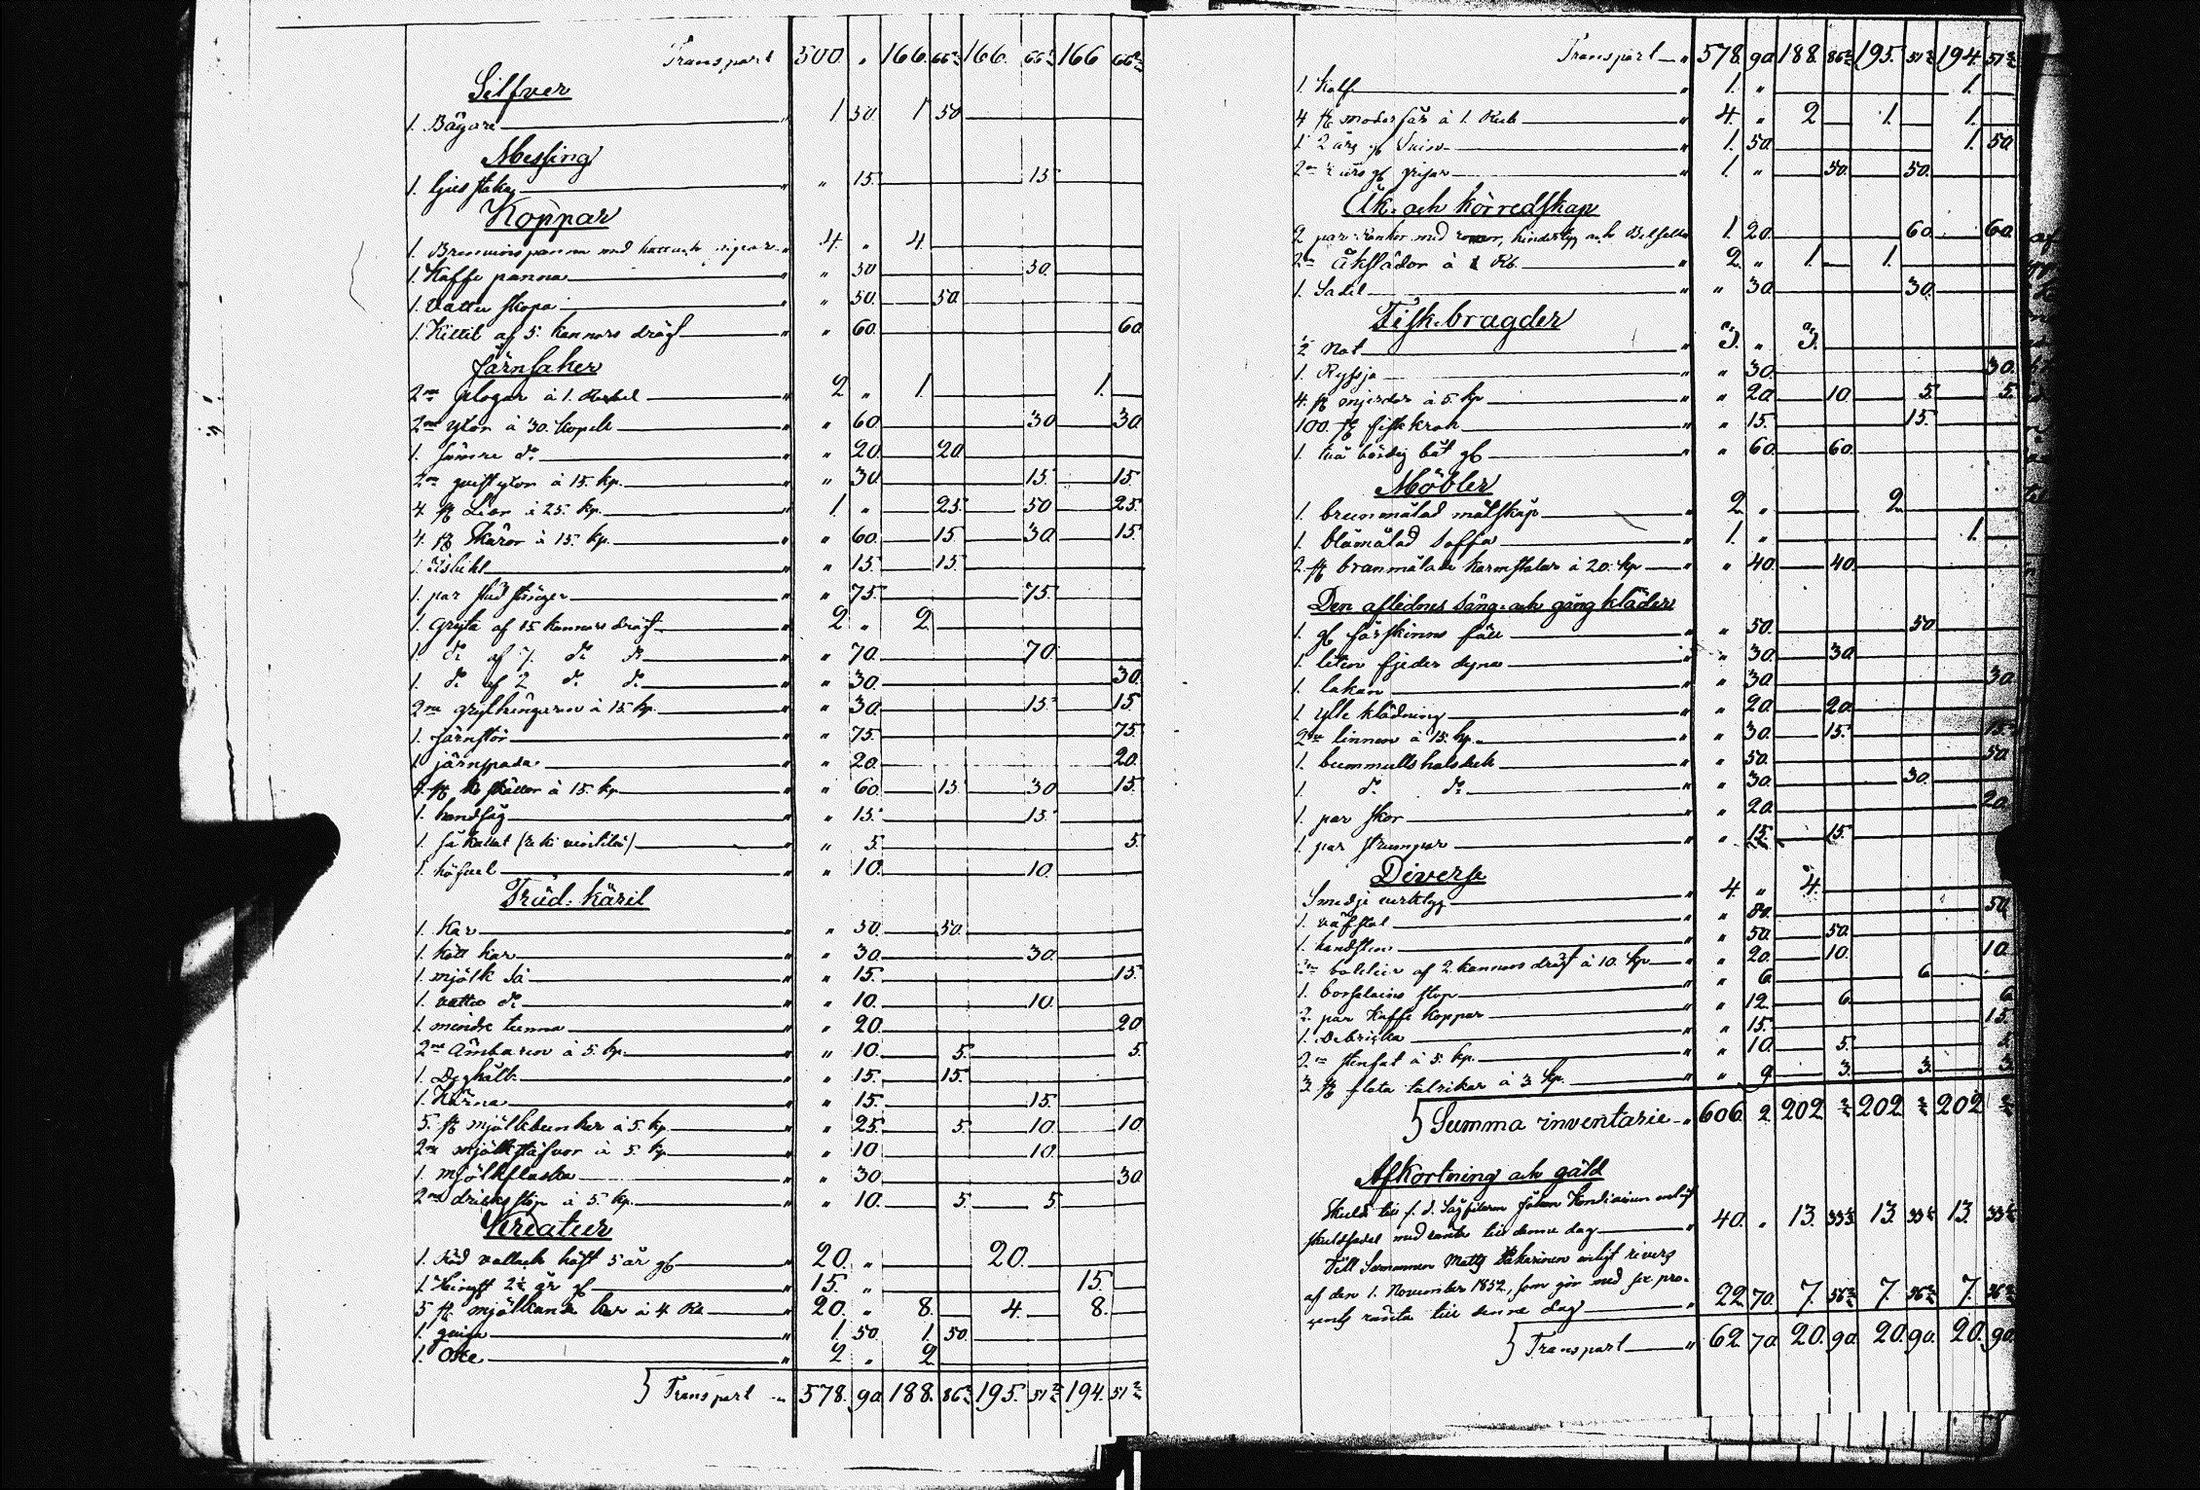 Transport 500. " 166. 66⅔ 166. 66⅔ 166 66⅔
Silfver
1. Bägare " 1 50. 1 50
Messing
1. ljusstake " " 15. 15
Koppar
1. Brennvinspanna med hatt och pipor " 4. " 4.
1. Kaffe panna " " 30 30.
1. Vatten skopa " " 50. 50
1. Kittil af 5. kannors drägt " " 60 60
Järnsaker
2ne plogar à 1. Rubel " 2 " 1. 1.
2ne yxor à 30. Kopek " " 60 30 30
1. sämre do " " 20 20
2ne qvistyxor à 15. kp. " " 30 15. 15.
4. st Liar à 25. kp. " 1. " 25. 50 25.
4. st Skäror à 15. kp. " " 60. 15. 30 15.
1. Isbill " " 15. 15.
1. par stud stänger " " 75. 75.
1. Gryta af 15 kannors drägt " 2 " 2.
1. do af 7. do do " " 70. 70.
1. do af 2 do do " " 30. 30.
2ne grythängaren à 15. kp. " " 30. 15. 15.
1. järnstör " " 75. 75.
1 järnspada " " 20. 20.
4. st skällor à 15. kp " " 60. 15. 30 15.
1. handsåg " " 15. 15.
1. så kallat " " 5. 5.
1. höfvel " " 10. 10.
Träd: käril
1. Kar " " 50. 50.
1. kött kar " " 30. 30.
1. mjölk Så " " 15. 15.
1. vatten do " " 10. 10.
1. mindre tunna " " 20. 20
2ne Ämbaren à 5. kp. " " 10. 5. 5.
1. Deghålk " " 15. 15.
1. Kärna " " 15. 15.
5. st mjölkbunkar à 5. kp. " " 25. 5. 10 10
2ne mjölkstäfvor à 5. kp " " 10 10.
1. mjölkflaska " " 30 30
2ne dricksstop à 5. kp. " " 10. 5. 5.
Kreatur
1. Röd vallack häst 5 år gl " 20. " 20.
1. Hingst 2½ år gl " 15. " 15.
5 st. mjölkande kor à 4 Rb " 20. " 8. 4. 8.
1. qviga " 1. 50. 1. 50
1. Oxe " 2 " 2
Transport " 578. 90 188. 86⅔ 195. 51⅔ 194. 51⅔
Transport " 578. 90. 188. 86⅔ 195. 51⅔ 194. 51⅔
1. Kalf " 1. " 1.
4 st moderfår à 1. Rub " 4. " 2 1. 1.
1. 2 års gl Svin " 1. 50. 1. 50
2ne ½ års gl grisar " 1. " 50. 50.
Åk- och körredskap
2 par rankor med remmar, hindertyg och Betseltom " 1. 20. 60 60
2ne Åkslädor à 1 Rb. " 2. " 1. 1.
1. Sadel " " 30 30.
Fisk-bragder
½ Not " 3. " 3.
1. Ryssja " " 30. 30.
4. st mjerdar à 5. kp " " 20. 10. 5. 5.
100. st fiskkrok " " 15. 15.
1. två bördig båt gl " " 60. 60.
Möbler
1. brunmålad matskåp " 2. " 2.
1. blåmålad Soffa " 1. " 1.
2. st brunmålade karmstolar à 20. kp " " 40. 40.
Den aflednes säng- och gång kläder
1. gl fårskinns fäll " " 50. 50.
1. liten fjeder dyna " " 30. 30.
1. lakan " " 30 30
1. ylle klädning " " 20. 20.
2ne linnen à 15. kp. " " 30. 15. 15.
1. bummulls halsduk " " 50. 50
1. do do " " 30. 30.
1. par skor " " 20. 20.
1. par strumpor " " 15. 15.
Diverse
Smedje verktyg " 4 " 4.
1. väfstol " " 50. 50
1. handsten " " 50. 50.
2ne bolklir af 2. kannors drägt à 10. kp " " 20. 10. 10
1. borselains stop " " 6. 6
2. par kaffe koppar " " 12. 6. 6.
1. Debricka " " 15. 15.
2ne stenfat à 5. kp. " " 10. 5. 5.
3. st flata talrikar à 3. kp. " " 9. 3. 3. 3.
Summa inventarie " 606. 2. 202 ⅔ 202 ⅔ 202 ⅔
Afkortning och gäld
Skuld till f. d. Sågfilaren Johan enligt
skuldsedel med ränta till denne dag " 40. " 13. 33⅓ 13. 33⅓ 13. 33⅓
Till Sexmannen Matts enligt revers
af den 1. November 1852, som gör med sex pro-
cents ränta till denne dag " 22 70. 7. 56⅔ 7. 56⅔ 7. 56⅔
Transport " 62 70. 20. 90. 20. 90. 20. 90